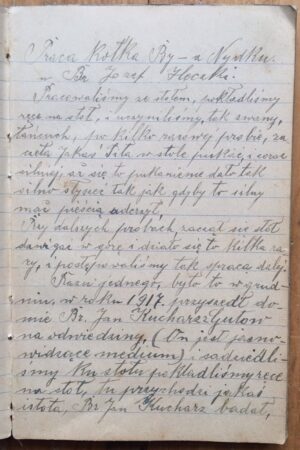 Praca Kółka Ry – a Nydku.
u Br. Jozef
Pracowaliśmy ze stołem, pokładliśmy
ręce na stoł, i uczyniliśmy, tak zwany,
łańcuch, po kilko razowej probie, za
częła jakaś siła w stole pukać, i coraz
silniej, aż się to pukanie dało tak
silno słyszeć tak jak gdyby to silny
mąż pięścią uderzył,
Przy dalszych probach, zaczął się stoł
dzwigać w górę i działo się to kilka ra
zy, i postępowaliśmy tak z pracą dalej.
Razu jednego, było to w grud-
niu, w roku 1917. przyszedł do
mie Br. Jan Kucharz
na odwiedziny, (On jest jasno-
widzące medium) i sadziedli-
smy ku stołu pokładliśmy ręce
na stoł, tu przychodzi jakaś
istota, Br. Jan Kucharz badał,